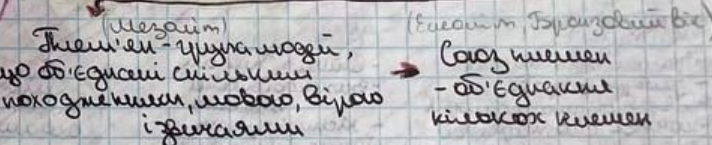 (Мезоліт)
Плем'я - група людей,
що об'єднані спільним
походженням, мовою, вірою
і звичаями
(Енеоліт, Бронзовий вік)
Союз племен
- об'єднання
кількох племен